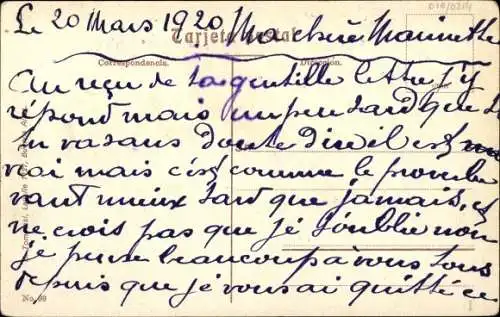 Le 20 Mars 1920 Ma chère Marinette
Tarjeta Postal
Correspondencia. Dirección.
Au reçu de ta gentille lettre j'y
répond mais un peu tard que
tu va sans doute dire il est
vrai mais c'est comme le proverbe
vaut mieux tard que jamais, et
ne crois pas que je t'oublie non
je pense beaucoup à vous tous
depuis que je vous ai quitté ce
No. 99